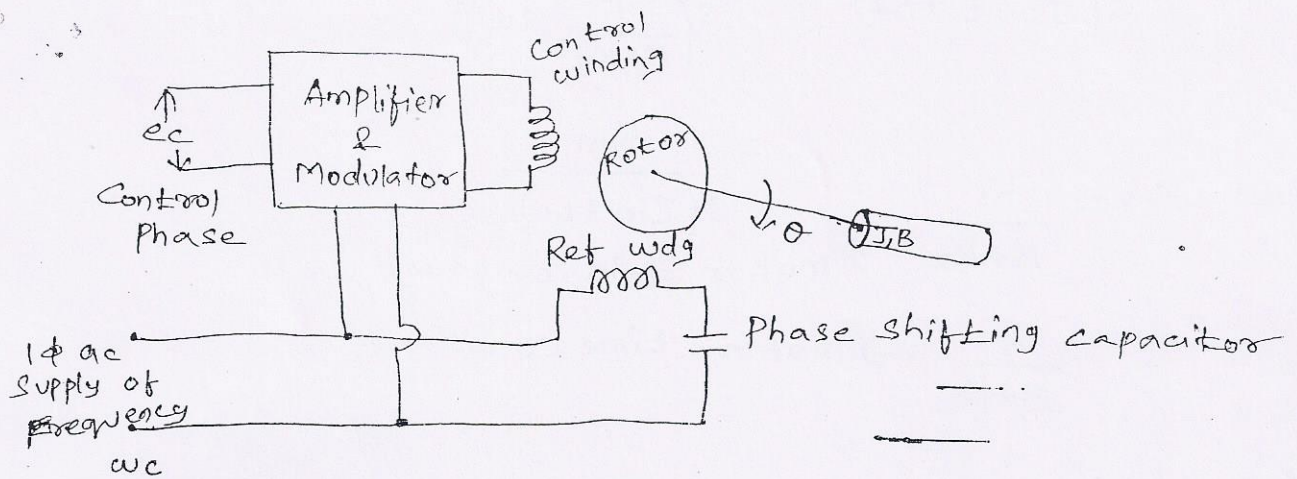 Control
winding
Amplifier
&
Modulator
ec
Control
Phase
Rotor
θ
J,B
Ref wdg
Phase Shifting capacitor
1ϕ ac
Supply of
Frequency
ωc